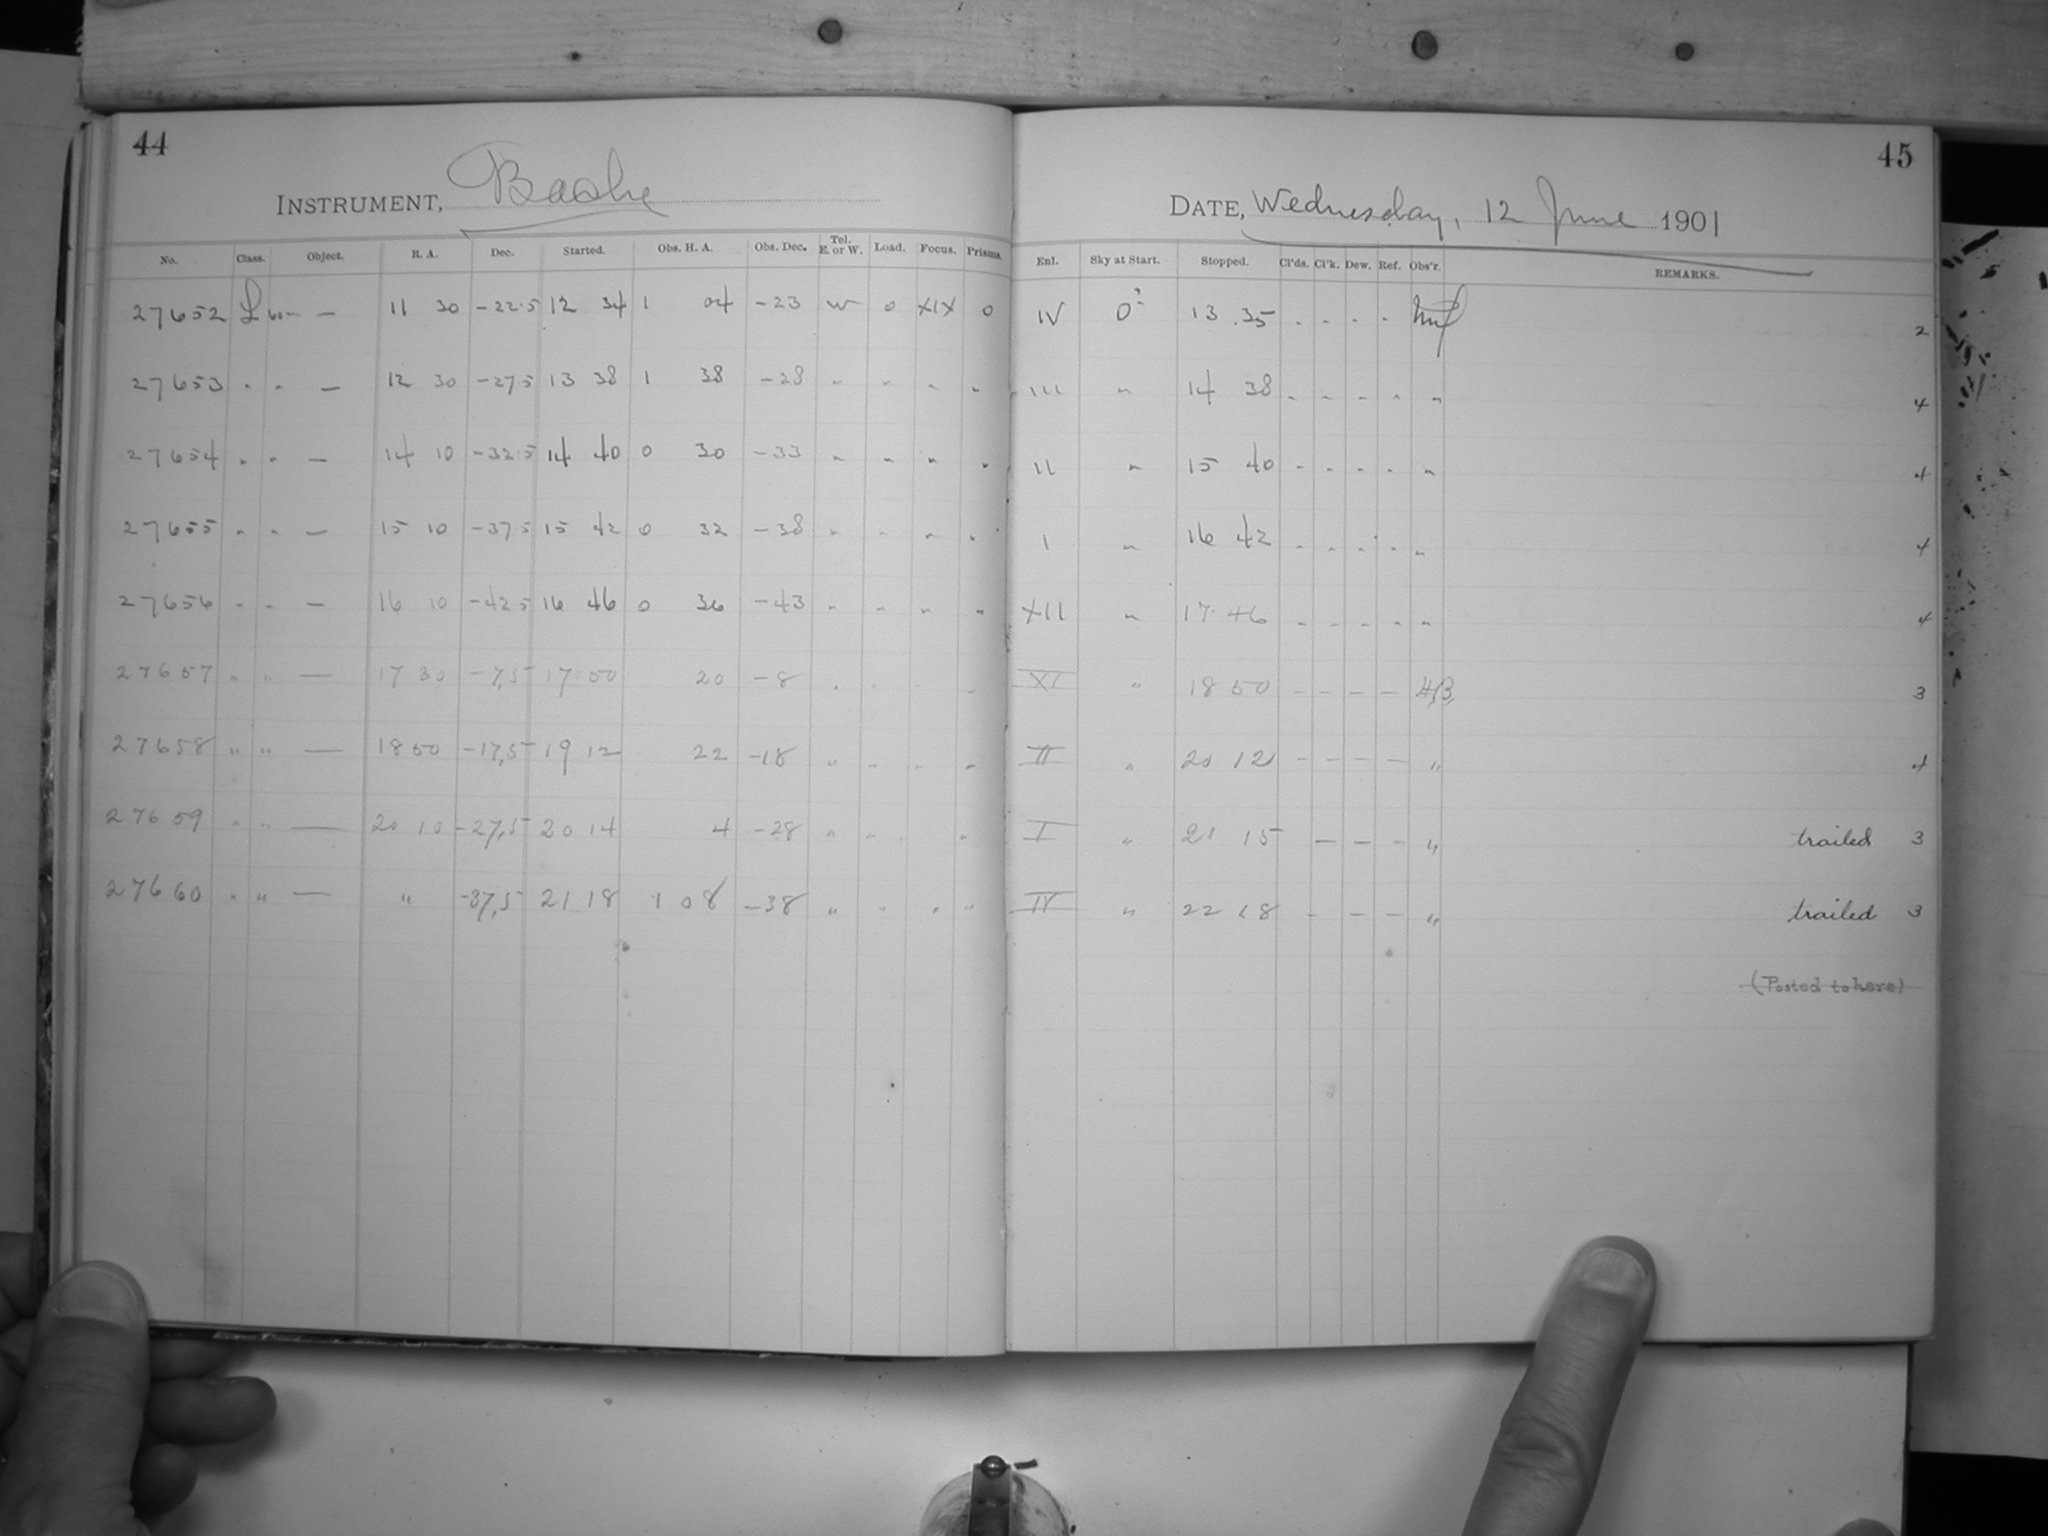 44
INSTRUMENT, Bache
No. Class. Object. R. A. Dec. Started. Obs. H. A. Obs. Dec. Tel. E. or W. Load. Focus. Prisms.
27652 L 60m — 11 30 -22.5 12 34 1 04 -23 W 0 XIX 0
27653 " " — 12 30 -27.5 13 38 1 38 -28 " " " "
27654 " " — 14 10 -32.5 14 40 0 30 -33 " " " "
27655 " " — 15 10 -37.5 15 42 0 32 -38 " " " "
27656 " " — 16 10 -42.5 16 46 0 36 -43 " " " "
27657 " " — 17 30 -7,5 17 50 20 -8 " " " "
27658 " " — 18 50 -17,5 19 12 22 -18 " " " "
27659 " " — 20 10 -27,5 20 14 4 -28 " " " "
27660 " " — " -37,5 21 18 1 08 -38 " " " "
45
DATE, Wednesday, 12 June 1901
Enl. Sky at Start. Stopped. Cl'ds. Cl'k. Dew. Ref. Obs'r. REMARKS.
IV 13 35 - - - - 2
III " 14 38 - - - - " 4
II " 15 40 - - - - " 4
I " 16 42 - - - - " 4
XII " 17 46 - - - - " 4
XI " 18 50 - - - - HB 3
II " 20 12 - - - - " 4
I " 21 15 - - - " trailed 3
IV " 22 18 - - - - " trailed 3
(Posted to here)